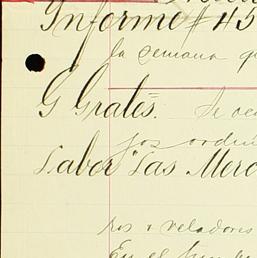 Informe # 45
la semana q
G Gratés. Se oc
Labor "Las Merc
pos o veladores
En el